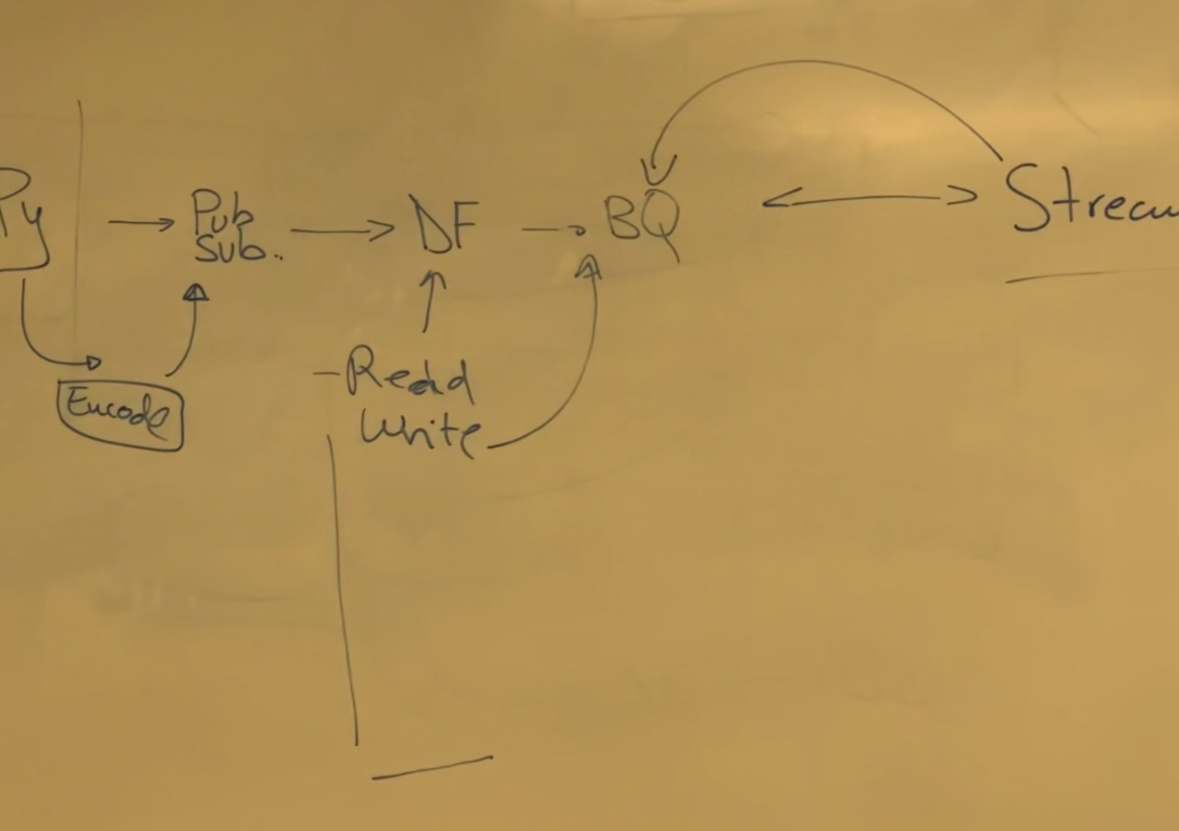 Py
Pub
Sub..
DF
BQ
Encode
-Read
Write